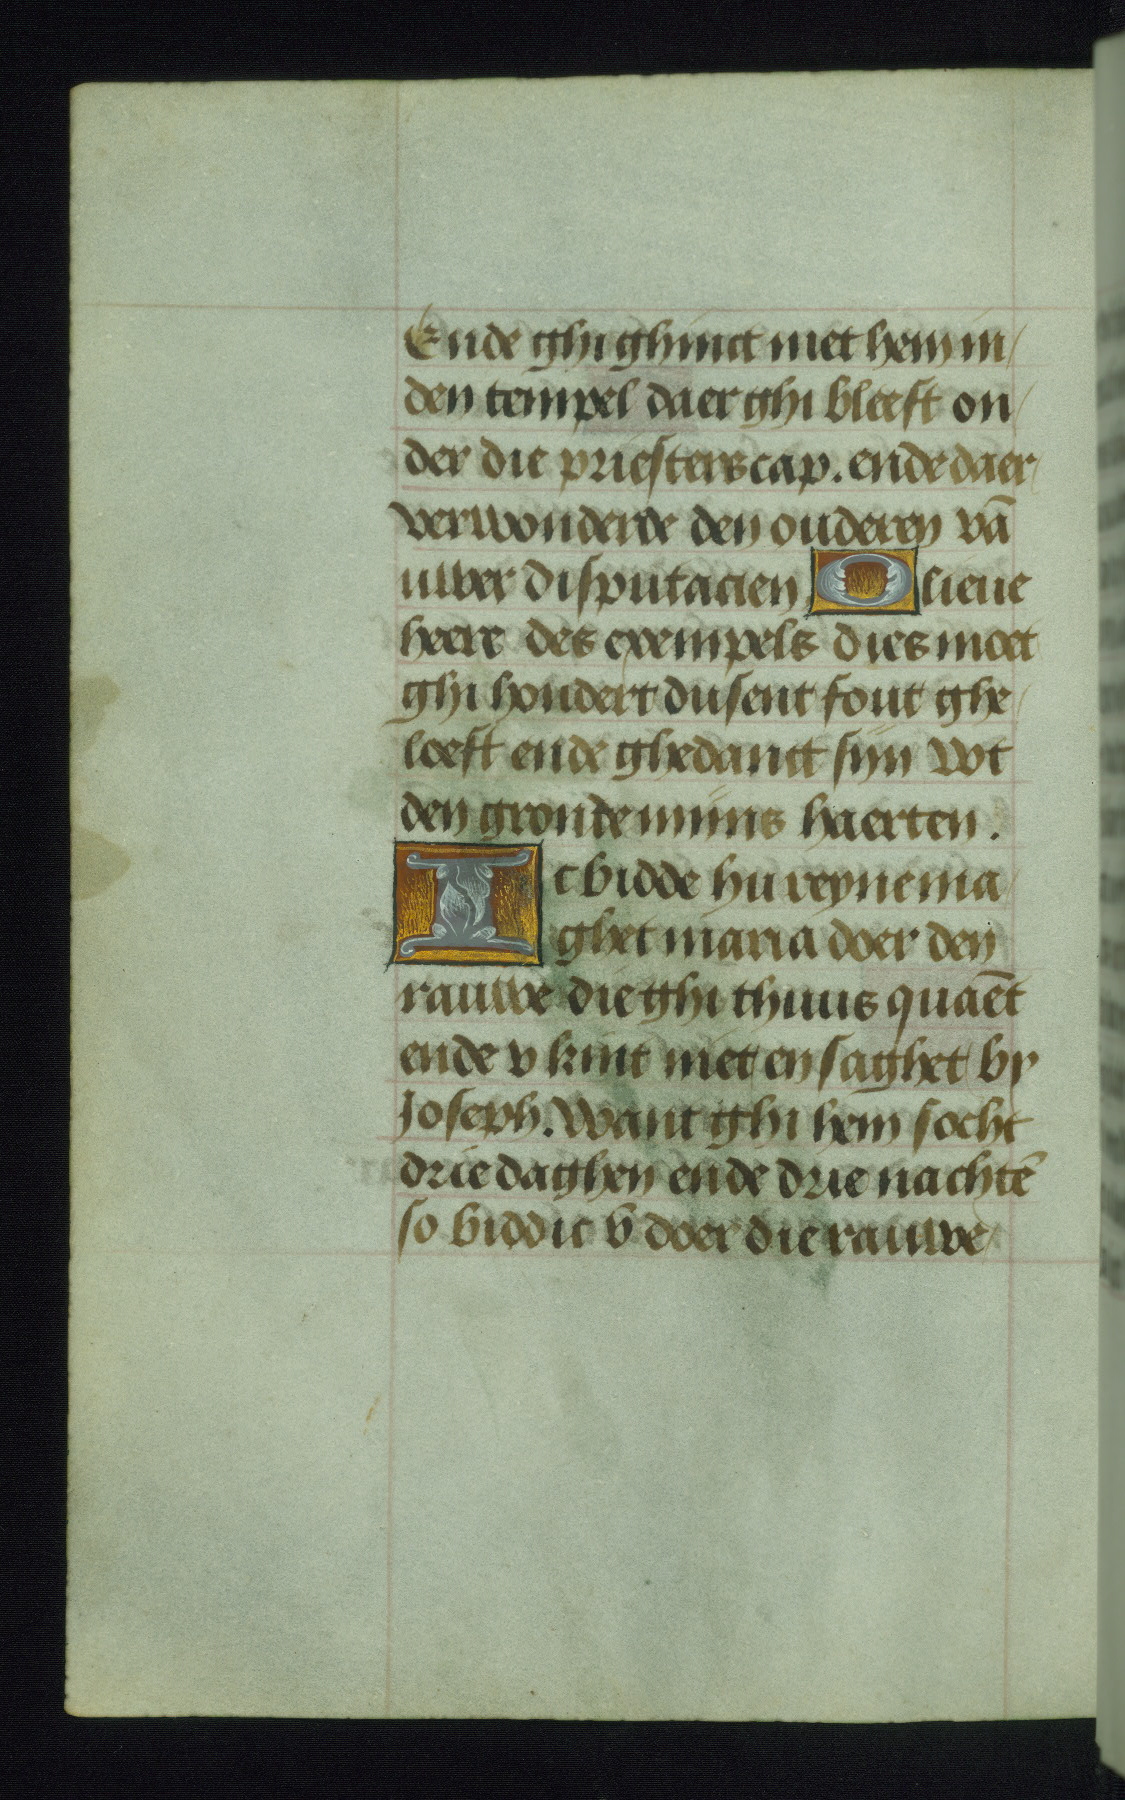 Ende ghi ghinct met hem in/
den tempel daer ghi bleeft on/
der die priesterscap. ende daer/
verwonderde den ouderen vā
uwer disputacien O lieue
heere des exempels dies moet
ghi hondert dusent fout ghe/
loeft ende ghedanct sijn Wt
den gronde mijns haerten.
Ic bidde hu reyne ma/
ghet maria doer den
rauwe die ghi thuus quaēt
ende v kint niet en saghet by
Joseph. Want ghi hem socht
drie daghen ende drie nachtē
so biddic v doer die rauwe/